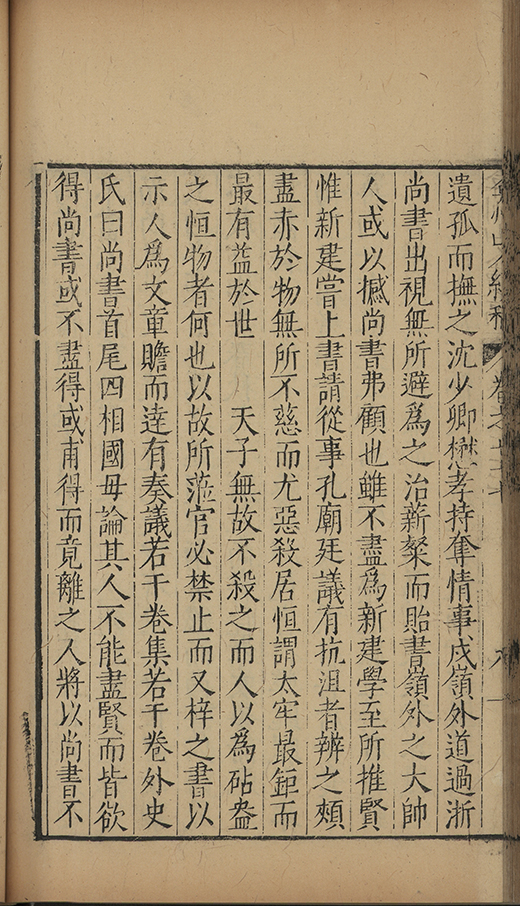 弇州山人續稿 卷之
遺孤而撫之沈少卿懋孝持奪情事戍嶺外道過浙
尚書出視無所避爲之治薪粲而貽書嶺外之大帥
人或以撼尚書弗顧也雖不盡爲新建學至所推賢
惟新建嘗上書請從事孔廟廷議有抗沮者辨之頗
盡亦於物無所不慈而尤惡殺居恒謂太牢最鉅而
最有益於世　天子無故不殺之而人以爲砧盎
之恒物者何也以故所蒞官必禁止而又梓之書以
示人爲文章贍而達有奏議若干卷集若干卷外史
氏曰尚書首尾四相國毋論其人不能盡賢而皆欲
得尚書或不盡得或甫得而竟離之人將以尚書不